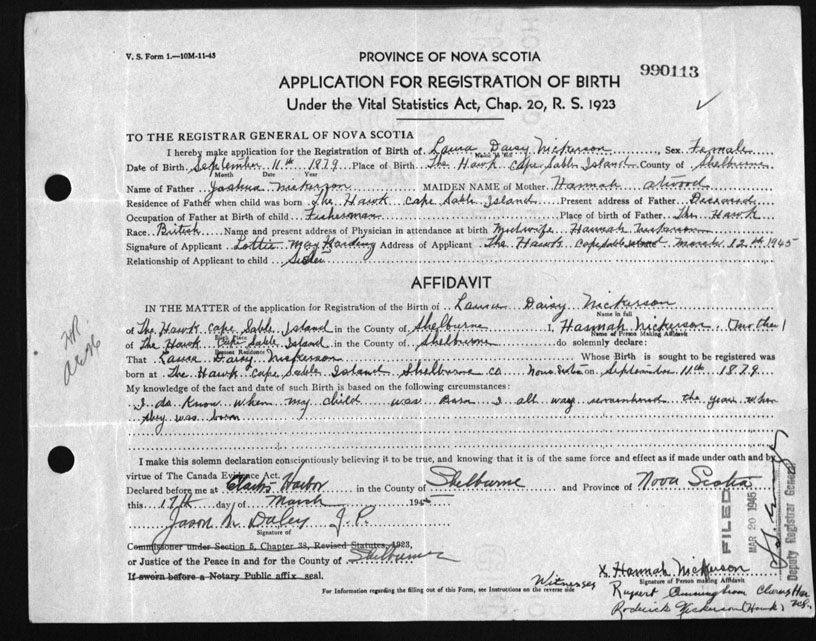 V. S. Form 1.—10M-11-45
PROVINCE OF NOVA SCOTIA
990113
APPLICATION FOR REGISTRATION OF BIRTH
Under the Vital Statistics Act, Chap. 20, R. S. 1923
TO THE REGISTRAR GENERAL OF NOVA SCOTIA
I hereby make application for the Registration of Birth of Laura Daisy Nickerson, Sex Female
Date of Birth September 11th 1879 Place of Birth The Hawk Cape Sable Island County of Shelburne
Month Date Year
Name of Father Joshua Nickerson MAIDEN NAME of Mother Hannah atwood
Residence of Father when child was born The Hawk Cape Sable Island Present address of Father Deceased
Occupation of Father at Birth of child Fisherman Place of birth of Father The Hawk
Race British Name and present address of Physician in attendance at birth Midwife Hannah Nickerson
Signature of Applicant Lottie May Harding Address of Applicant The Hawk Cape Sable Island March 12th 1945
Relationship of Applicant to child Sister
AFFIDAVIT
IN THE MATTER of the application for Registration of the Birth of Laura Daisy Nickerson
Name in full
of The Hawk Cape Sable Island in the County of Shelburne I, Hannah Nickerson, Mother
Birth Place Name of Person Making Affidavit
of The Hawk Cape Sable Island in the County of Shelburne do solemnly declare:
Present Residence
That Laura Daisy Nickerson Whose Birth is sought to be registered was
born at The Hawk Cape Sable Island Shelburne Co Nova Scotia on September 11th 1879
My knowledge of the fact and date of such Birth is based on the following circumstances:
I do Know when my child was Born I all way remembered the year when
they was born
I make this solemn declaration conscientiously believing it to be true, and knowing that it is of the same force and effect as if made under oath and by
virtue of The Canada Evidence Act.
Declared before me at Clarks Harbor in the County of Shelburne and Province of Nova Scotia
this 17th day of March 194
Jason M Daley J. P.
Signature of
Commissioner under Section 5, Chapter 38, Revised Statutes, 1923,
or Justice of the Peace in and for the County of Shelburne
If sworn before a Notary Public affix seal.
X Hannah Nickerson
Signature of Person making Affidavit
For Information regarding the filling out of this Form, see Instructions on the reverse side
Witnesses
Rupert Cunningham Clarks Har
N.S.
Roderick Nickerson (Hawk)
FILED
MAR 20 1945
Deputy Registrar General